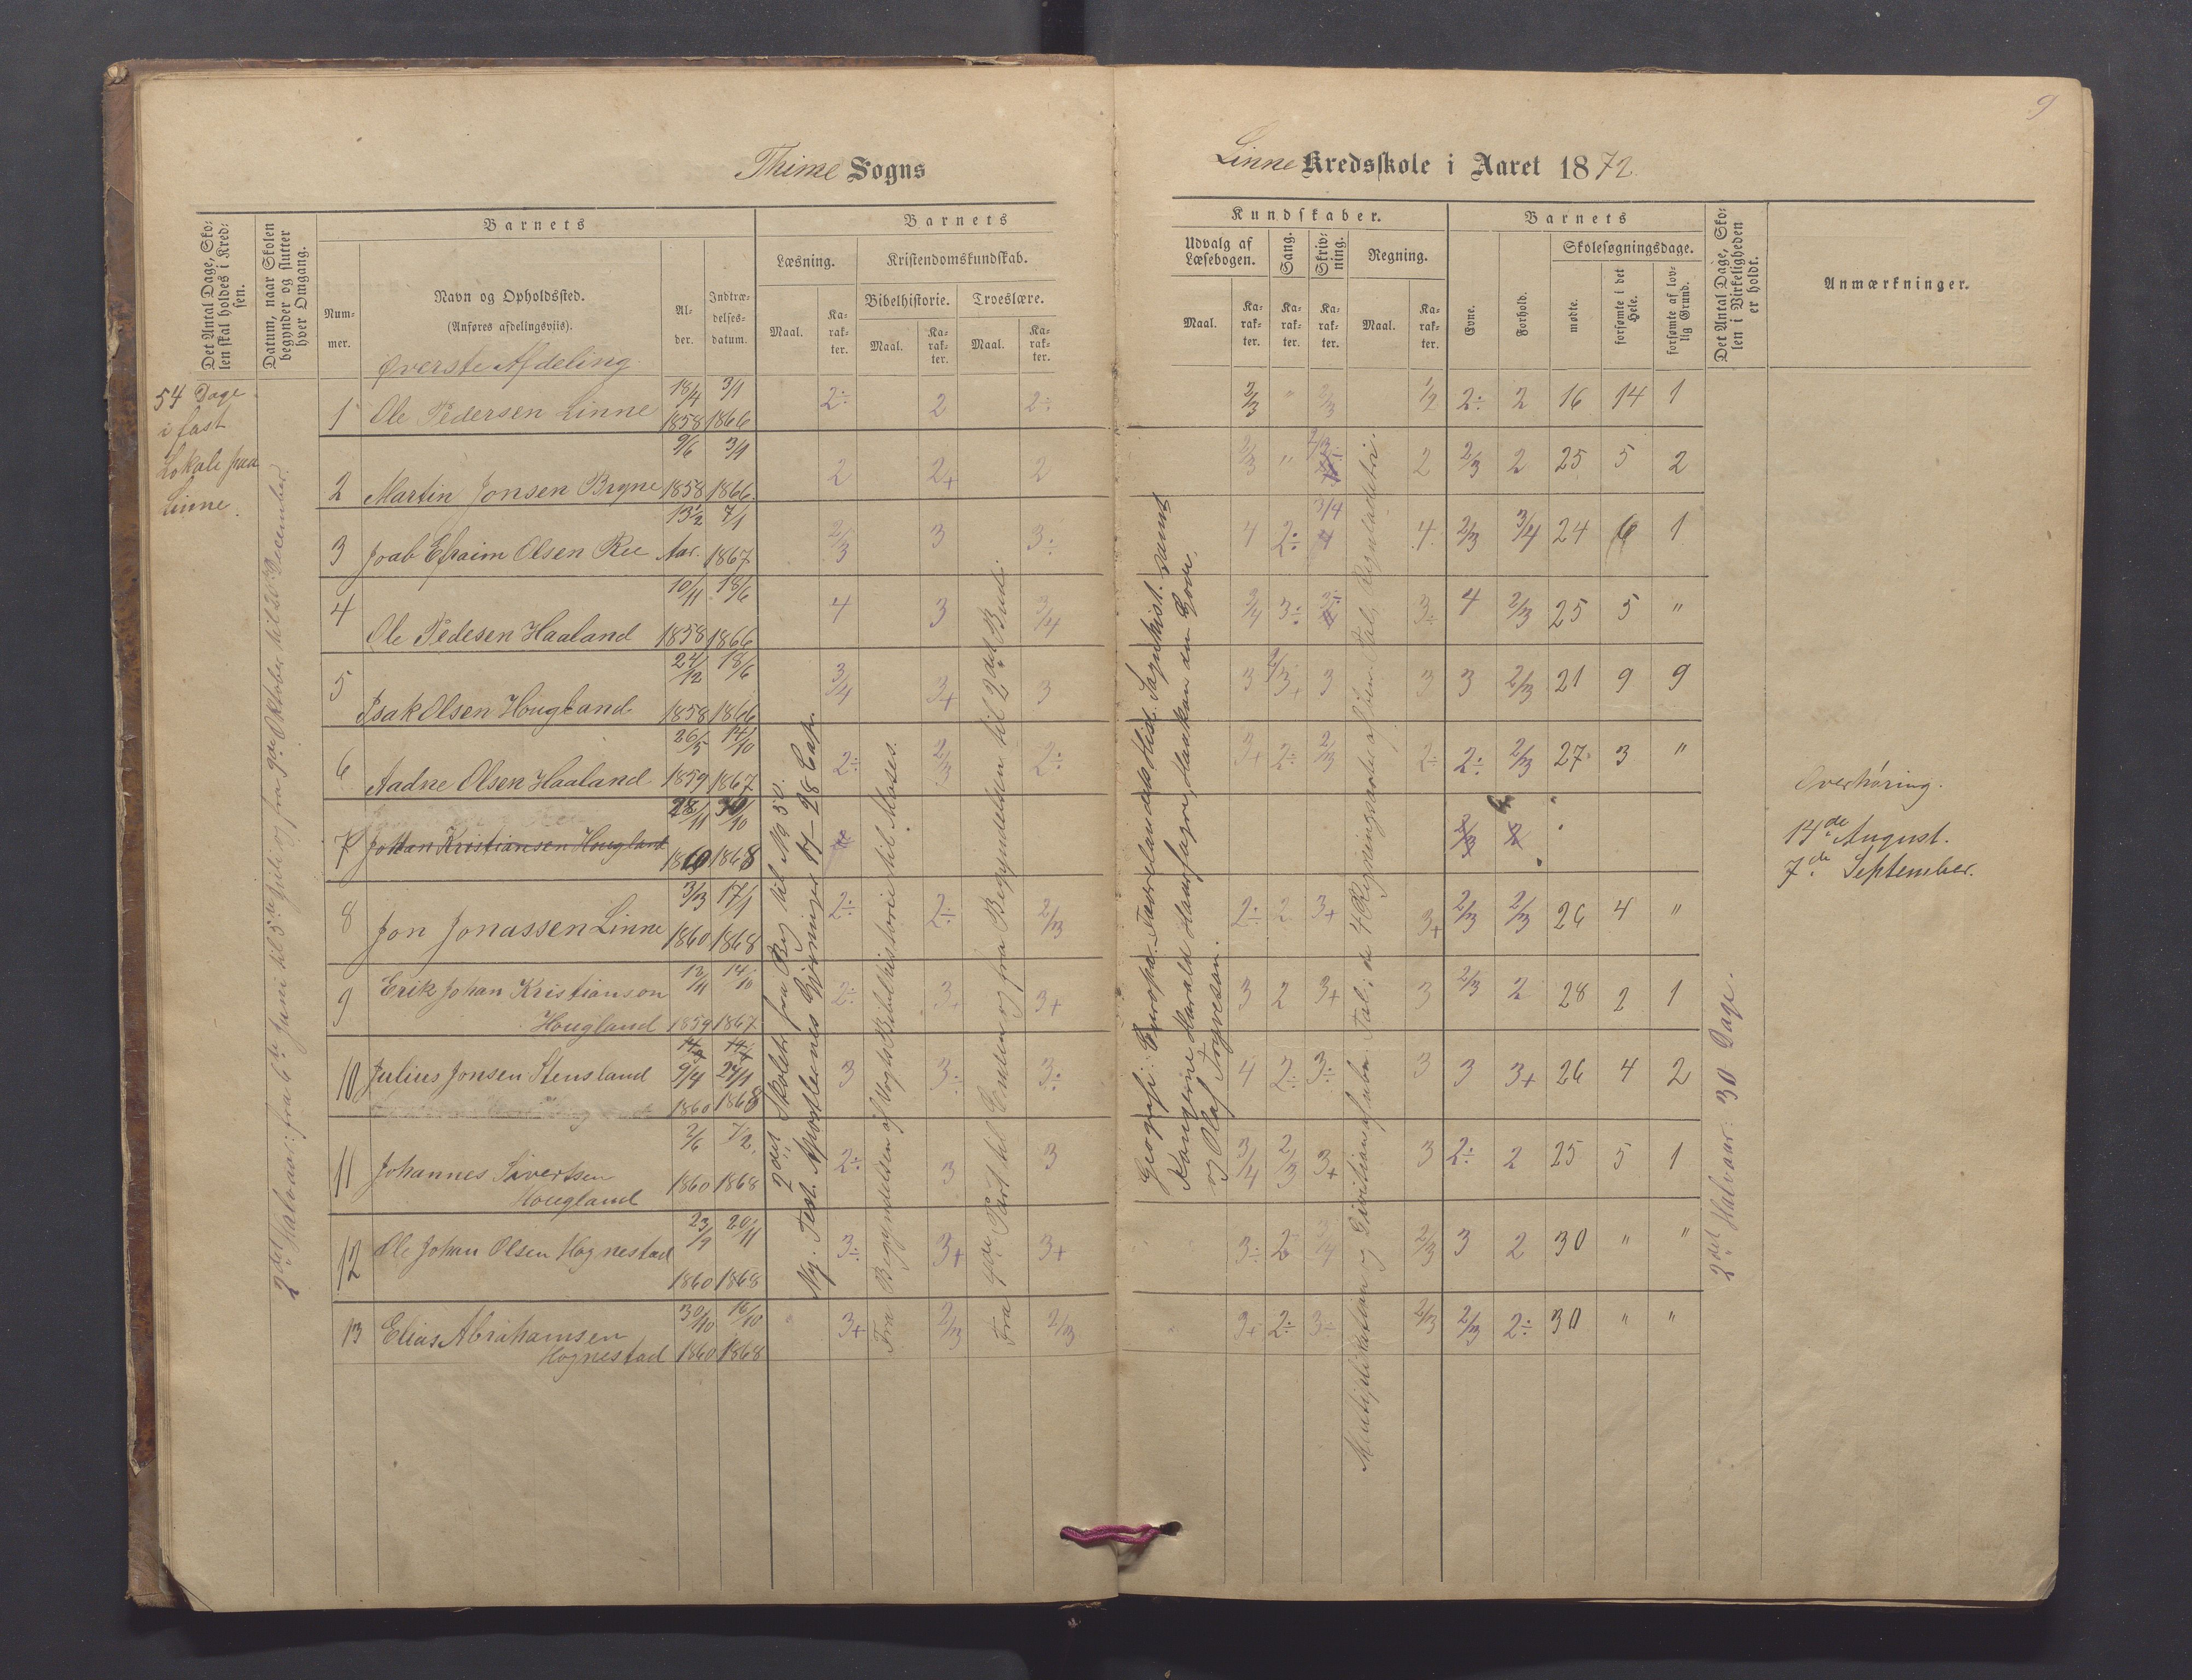 9
Thime Sogns
Linne Kredsskole i Aaret 1872
Det Antal Dage, Sko-
len skal holdes i Kred-
sen.
Datum, naar Skolen
begynder og slutter
hver Omgang.
Barnets
Num-
mer.
Navn og Opholdssted.
(Anføres afdelingsviis).
Al-
der.
Indtræ-
delses-
datum.
Barnets
Læsning.
Kristendomskundskab.
Bibelhistorie.
Troeslære.
Maal.
Ka-
rak-
ter.
Maal.
Ka-
rak-
ter.
Maal.
Ka-
rak-
ter.
Kundskaber.
Udvalg af
Læsebogen.
Sang.
Skriv-
ning.
Regning.
Maal.
Ka-
rak-
ter.
Ka-
rak-
ter.
Ka-
rak-
ter.
Maal.
Ka-
rak-
ter.
Barnets
Evne.
Forhold.
Skolesøgningsdage.
mødte.
forsømte i det
Hele.
forsømte af lov-
lig Grund.
Det Antal Dage, Sko-
len i Virkeligheden
er holdt.
Anmærkninger.
Øverste Afdeling
54 Dage
i fast
Lokale paa
Linne.
2det Halvaar: fra 6te Juni til 5te Juli og fra 9de Oktober til 20de December.
1 Ole Pedersen Linne 18/4 1858 3/1 1866 2÷ 2 2÷ 2/3 " 2/3 1/2 2÷ 2 16 14 1
2 Martin Jonsen Bryne 9/6 1858 3/1 1866 2 2+ 2 2/3 " 2/3÷ 2 2/3 2 25 5 2
3 Joab Efraim Olsen Ree 13 1/2 Aar. 7/1 1867 2/3 3 3÷ 4 2÷ 3/4 4 2/3 3/4 24 6 1
4 Ole Pedesen Haaland 10/11 1858 18/6 1866 4 3 3/4 3/4 3÷ 3÷ 4 2/3 25 5 "
5 Isak Olsen Hougland 24/12 1858 18/6 1866 3/4 3+ 3 3 2/3+ 3 3 3 2/3 21 9 9
6 Aadne Olsen Haaland 26/5 1859 14/10 1867 2÷ 2/3 2÷ 3+ 2÷ 2/3 2÷ 2÷ 2/3 27 3 "
7 Johan Kristiansen Hougland 28/11 1860 30/10 1868 2/3 2
8 Jon Jonassen Linne 3/3 1860 17/1 1868 2÷ 2÷ 2/3 2÷ 2 3+ 3+ 2/3 2/3 26 4 "
9 Erik Johan Kristianson
Hougland 12/11 1859 14/10 1867 2÷ 3+ 3+ 3 2 3+ 3 2/3 2 28 2 1
10 Julius Jonsen Stensland 9/4 1860 24/1 1868 3 3÷ 3÷ 4 2÷ 3÷ 3 3 3+ 26 4 2
11 Johannes Sivertsen
Hougland 2/6 1860 7/2 1868 2÷ 3 3 3/4 2/3 3+ 3 2÷ 2 25 5 1
12 Ole Johan Olsen Hognestad 23/9 1860 20/11 1868 3÷ 3+ 3+ 3÷ 2 3/4 2/3 3 2 30 " "
13 Elias Abrahamsen
Hognestad 30/10 1860 16/10 1868 3+ 2/3 2/3 3+ 2÷ 3÷ 2/3 2/3 2÷ 30 " "
2det Skoletr fra Beg til No 50.
Ny. Test. Apostlernes Gjerninger 17-28 Cap.
Fra Begyndelsen af Vogts Bibelhistorie til Moses.
Fra 4de Part til Enden og fra Begyndelsen til 2det Bud.
Geografi: Europa. Fædrelandets Hist. Sagnhist. samt
Kongerne Harald Haarfagre, Haakon den Gode
og Olaf Trygvesøn.
Multiplikation og Division af ube. Tal; de 4 Regningsarter af
2det Halvaar: 30 Dage.
Overhøring.
14de August.
7de September.